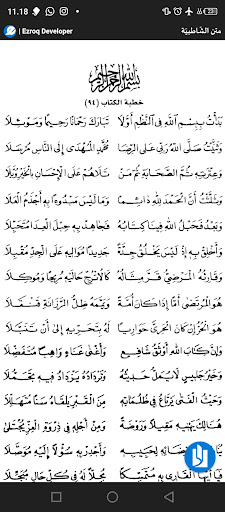 11.18
Ezroq Developer |
متن الشاطبيّة
بسم الله الرحمن الرحيم
خطبة الكتاب (٩٤)
بَدَأْتُ بِبِسْمِ اللهِ فِي النَّظْمِ أَوَّلَا تَبَارَكَ رَحْمَانًا رَحِيمًا وَمَوْئِلَا
وَثَنَّيْتُ صَلَّى اللهُ رَبِّي عَلَى الرِّضَا مُحَمَّدٍ الْمُهْدَى إِلَى النَّاسِ مُرْسَلَا
وَعِتْرَتِهِ ثُمَّ الصَّحَابَةِ ثُمَّ مَنْ تَلَاهُمْ عَلَى الْإِحْسَانِ بِالْخَيْرِ وُبَّلَا
وَثَلَّثْتُ أَنَّ الْحَمْدَ لِلهِ دَائِمًا وَمَا لَيْسَ مَبْدُوءًا بِهِ أَجْذَمُ الْعَلَا
وَبَعْدُ فَحَبْلُ اللهِ فِينَا كِتَابُهُ فَجَاهِدْ بِهِ حِبْلَ الْعِدَا مُتَحَبِّلَا
وَأَخْلِقْ بِهِ إِذْ لَيْسَ يَخْلُقُ جِدَّةً جَدِيدًا مُوَالِيهِ عَلَى الْجِدِّ مُقْبِلَا
وَقَارِئُهُ الْمَرْضِيُّ قَرَّ مِثَالُهُ كَالْاتْرُجِّ حَالَيْهِ مُرِيحًا وَمُوكِلَا
هُوَ الْمُرْتَضَى أَمًّا إِذَا كَانَ أُمَّةً وَيَمَّمَهُ ظِلُّ الرَّزَانَةِ قَنْقَلَا
هُوَ الْحُرُّ إِنْ كَانَ الْحَرِيَّ حَوَارِيًا لَهُ بِتَحَرِّيهِ إِلَى أَنْ تَنَبَّلَا
وَإِنَّ كِتَابَ اللهِ أَوْثَقُ شَافِعٍ وَأَغْنَى غَنَاءٍ وَاهِبًا مُتَفَضِّلَا
وَخَيْرُ جَلِيسٍ لَا يُمَلُّ حَدِيثُهُ وَتَرْدَادُهُ يَزْدَادُ فِيهِ تَجَمُّلَا
وَحَيْثُ الْفَتَى يَرْتَاعُ فِي ظُلُمَاتِهِ مِنَ الْقَبْرِ يَلْقَاهُ سَنًا مُتَهَلِّلَا
هُنَالِكَ يَهْنِيهِ مَقِيلًا وَرَوْضَةً وَمِنْ أَجْلِهِ فِي ذِرْوَةِ الْعِزِّ يُجْتَلَى
ضَائِهِ لِحَبِيبِهِ وَأَجْدِرْ بِهِ سُؤْلًا إِلَيْهِ مُوَصَّلَا
يَا أَيُّهَا الْقَارِي بِهِ مُتَمَسِّكًا مُجِلًّا لَهُ فِي كُلِّ حَالٍ مُبَجِّلَا